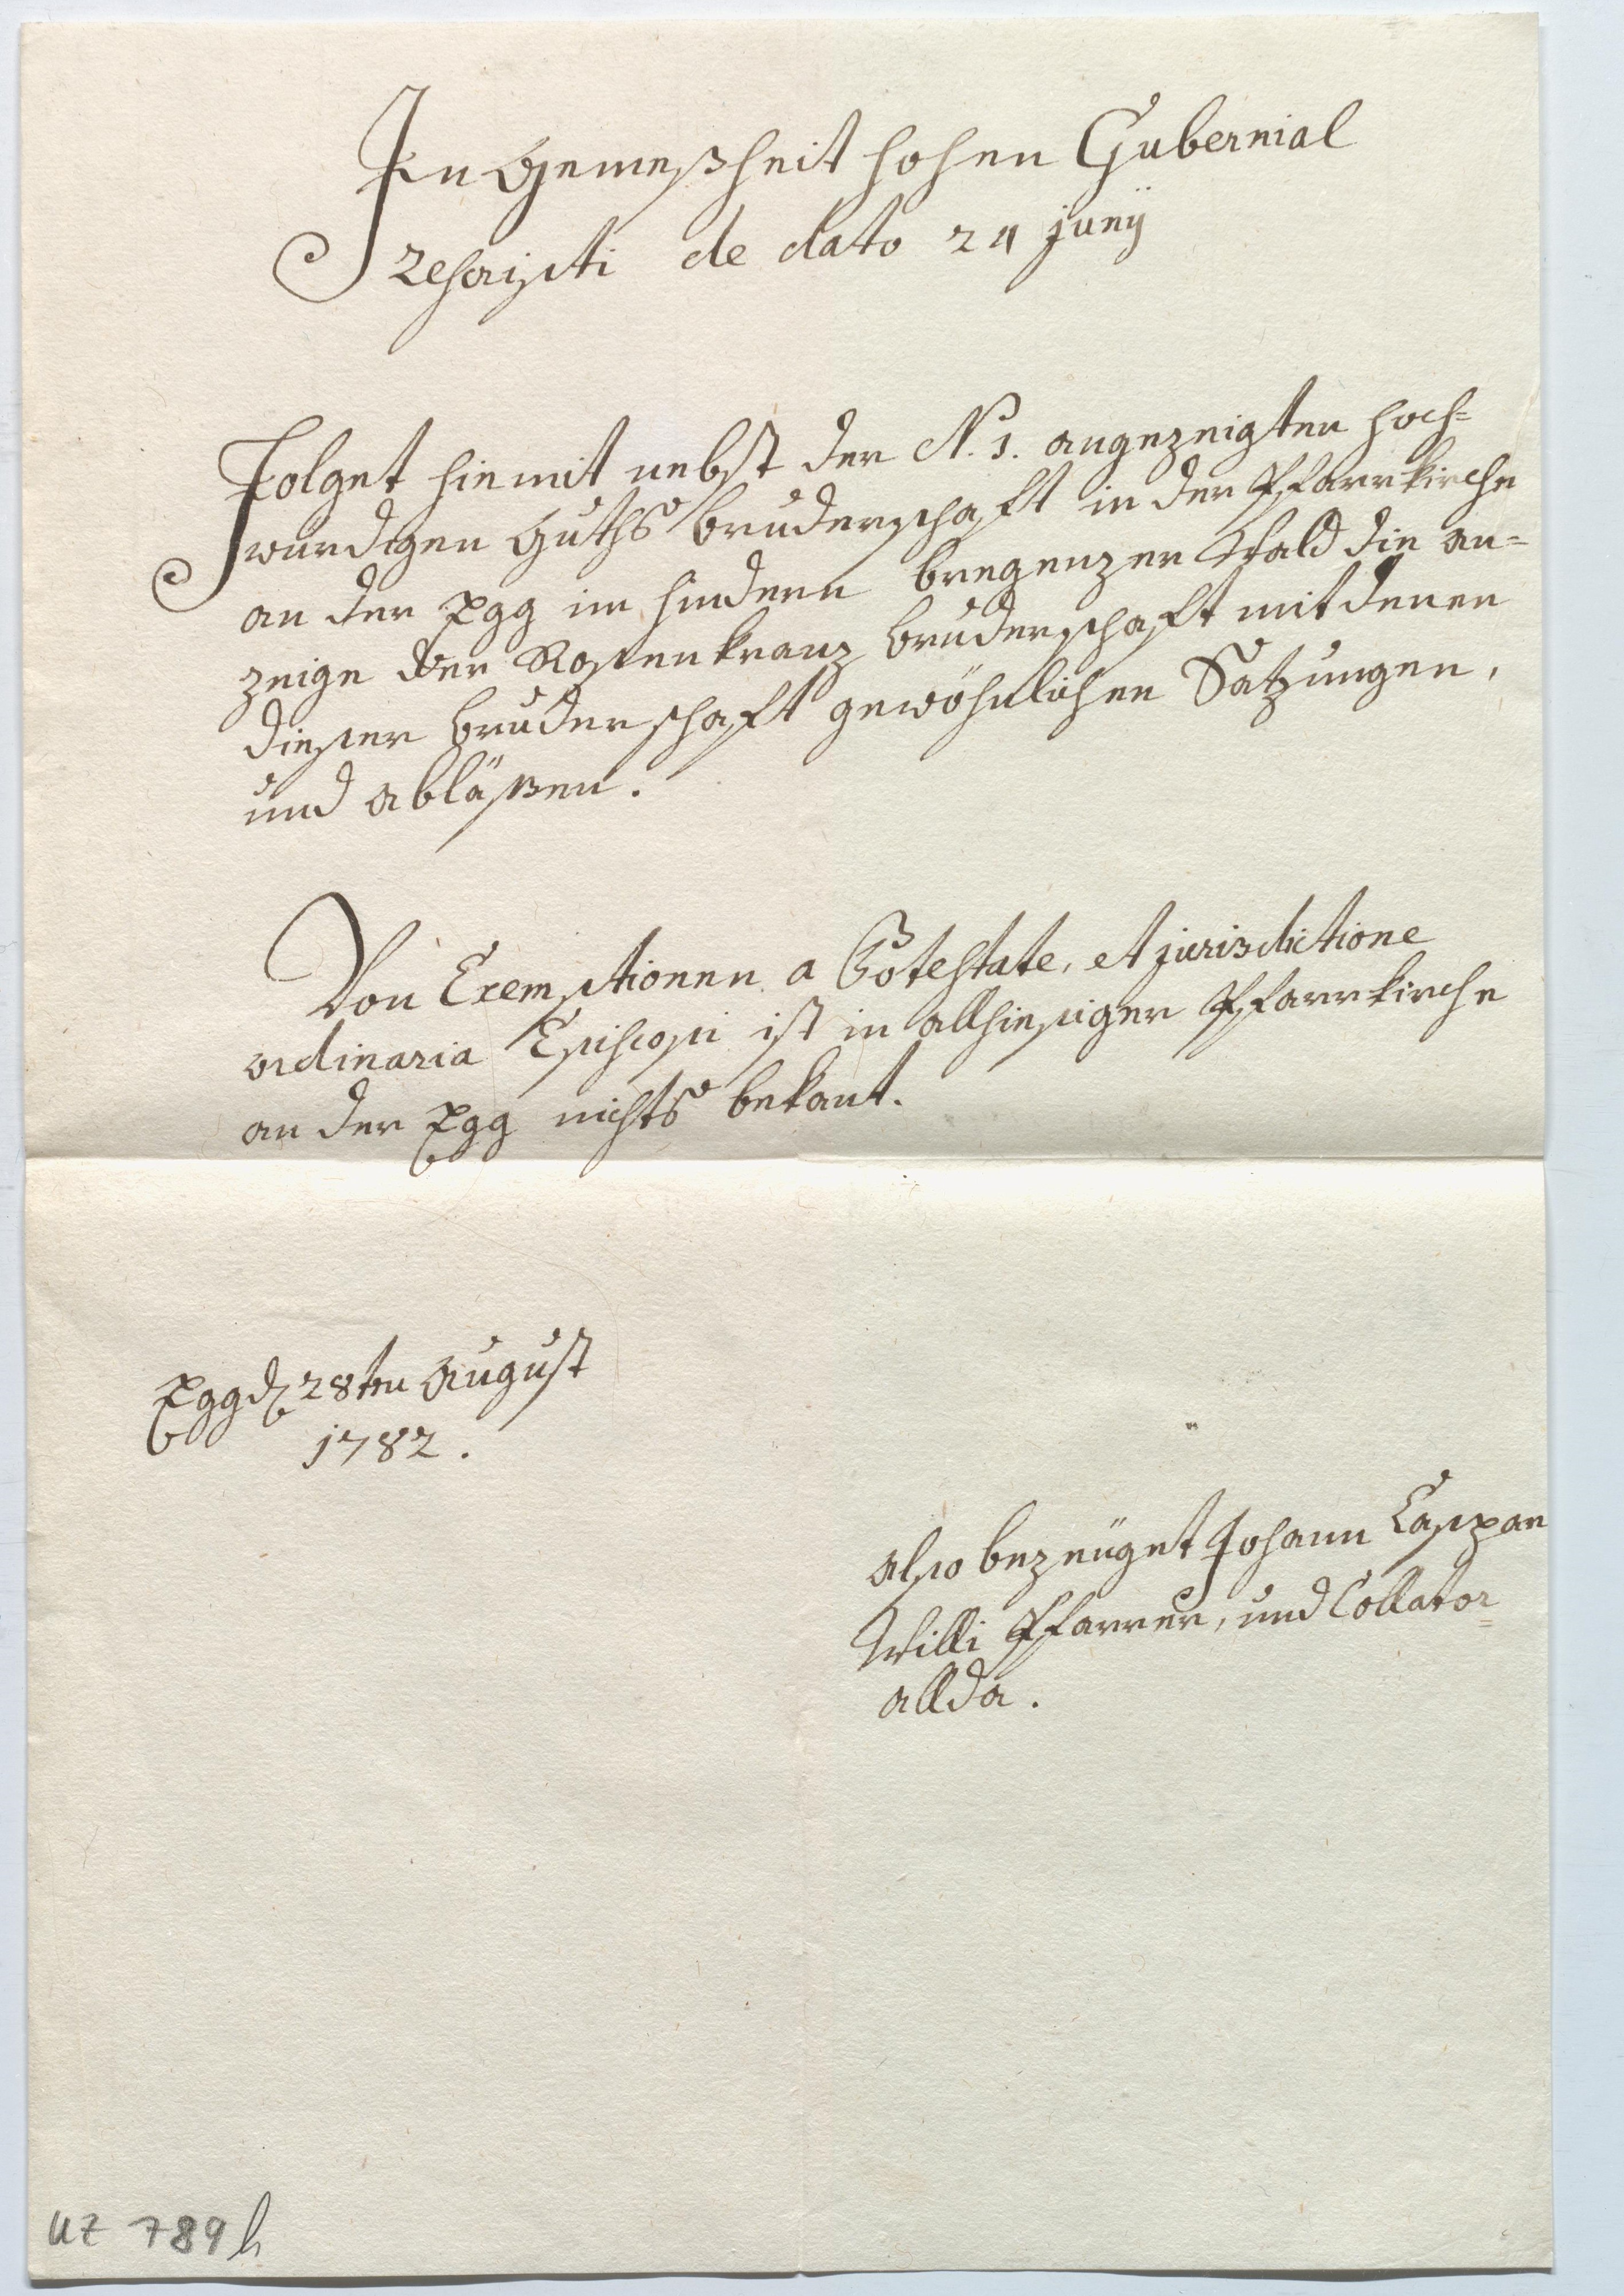 In Gemeßheit hohen Gubernial
Rescripti de dato 24 junÿ
Folget hiemit nebst der N. 1. angezeigten hoch=
würdigen Guths bruderschaft in der Pfarrkirche
an der Egg im hindern bregenzer Wald die an=
zeige der Rosenkranz bruderschaft mit denen
dieser bruderschaft gewöhnlichen Satzungen,
und abläßen.
Von Exemptionen a Potestate, et jurisdictione
ordinaria Episcopi ist in allhiesiger Pfarrkirche
an der Egg nichts bekant.
Egg d 28ten August
1782.
also bezeüget Johann Caspar
Willi Pfarrer, und Collator
allda.
UZ 789 h